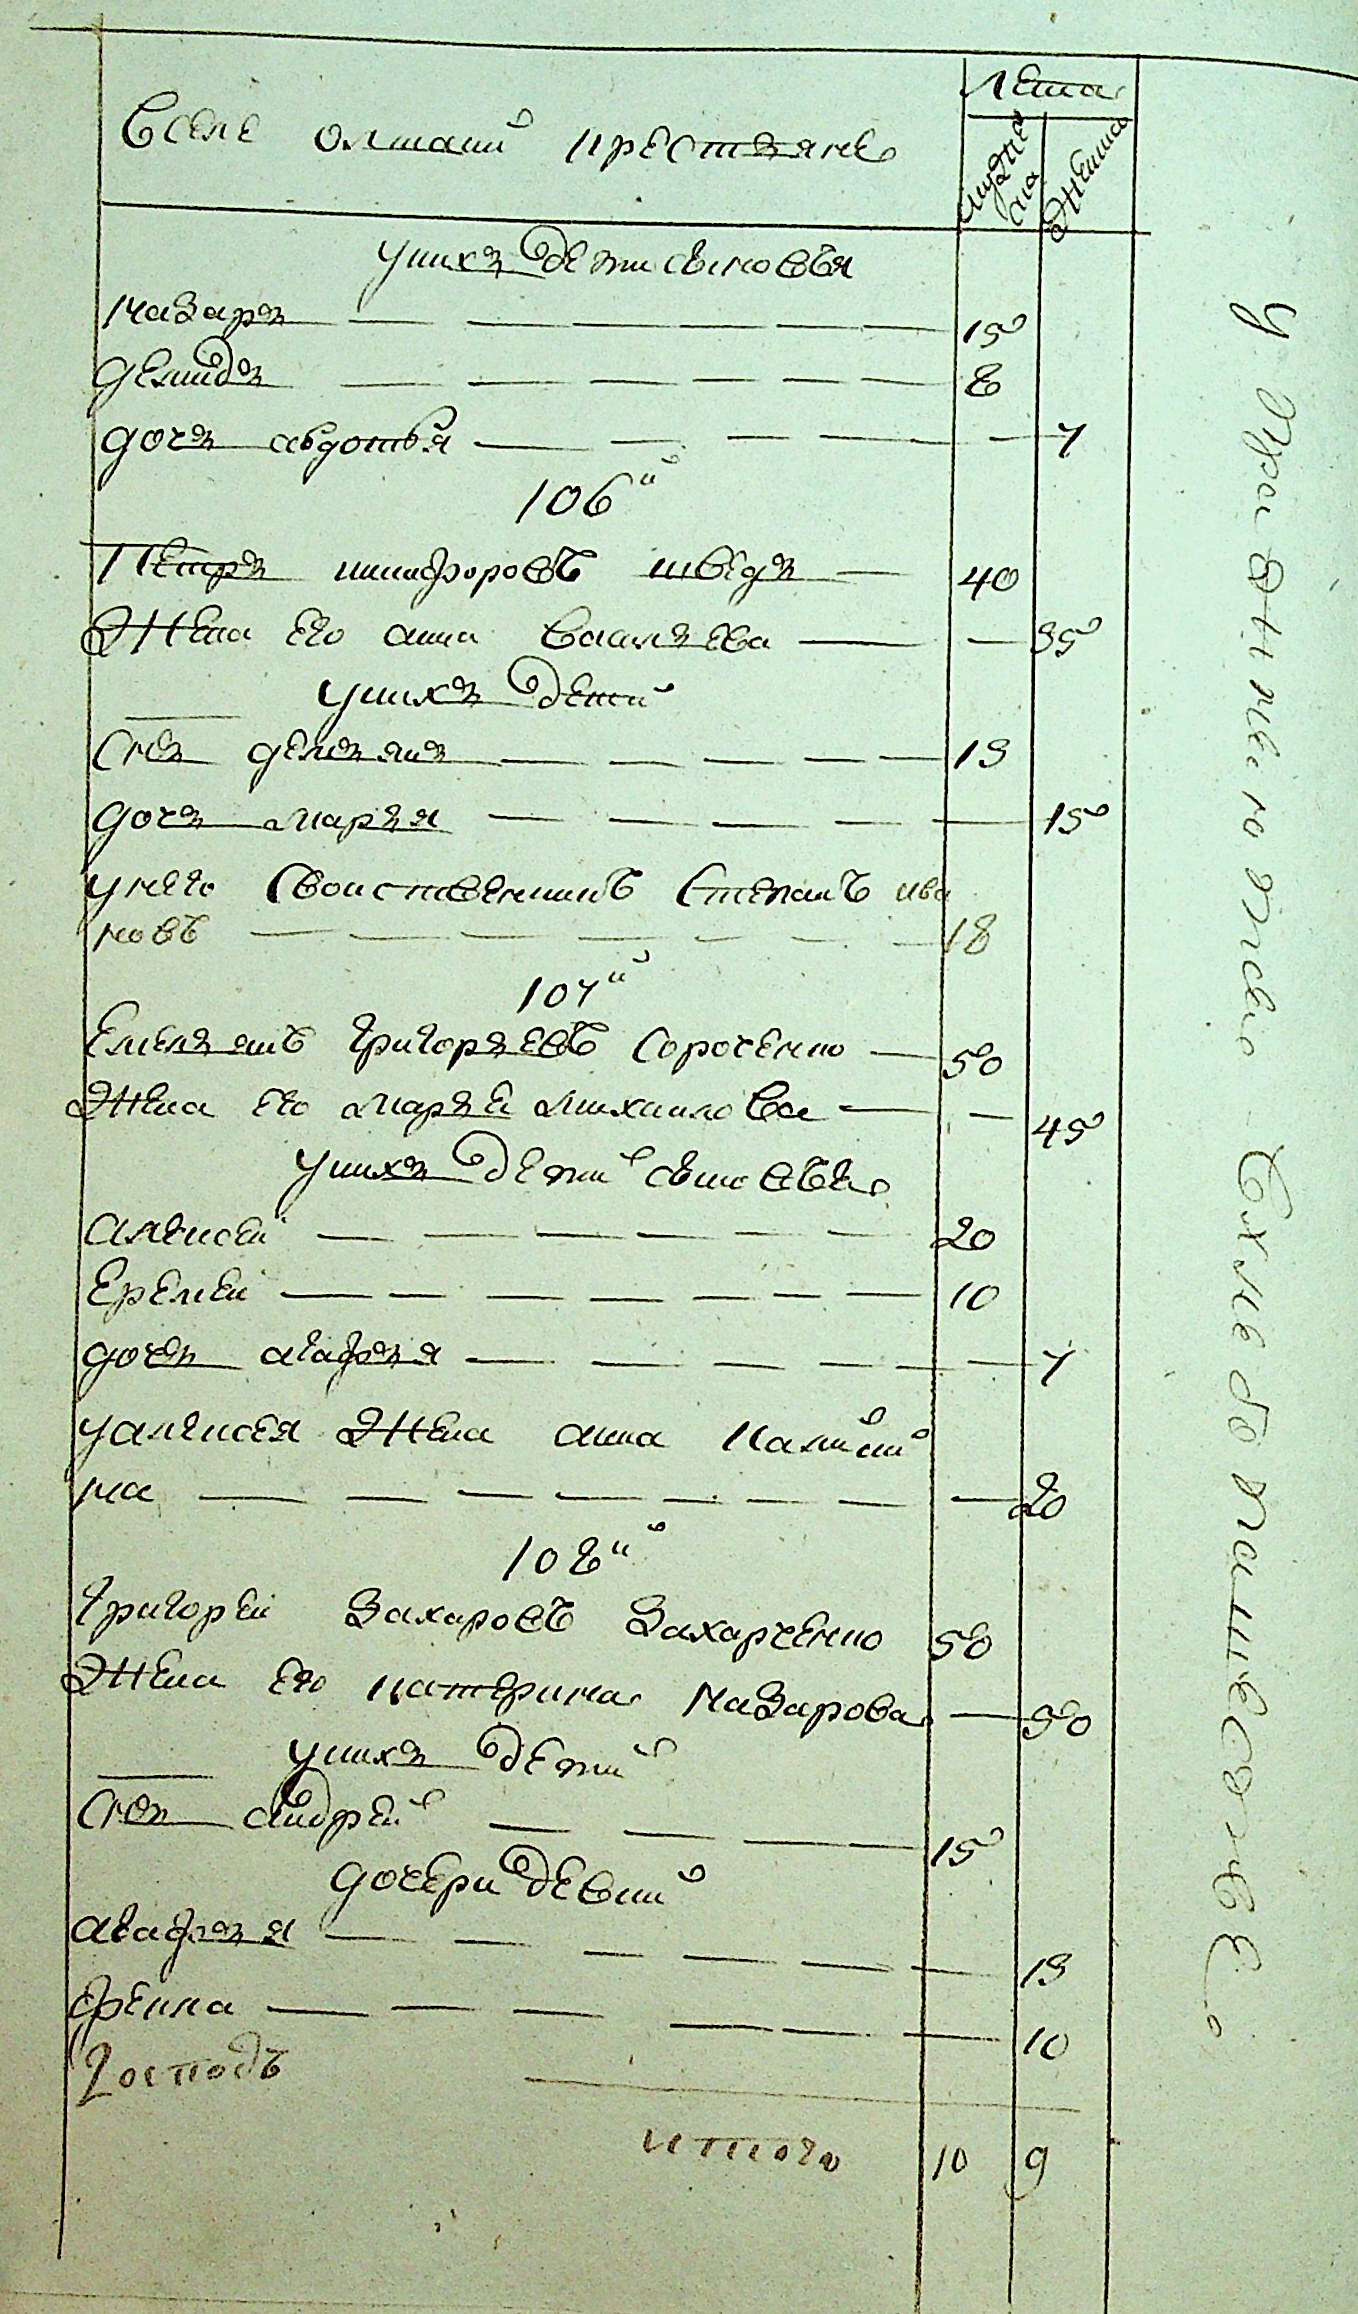 Вселе олшани крестьяне
Лета
мужеска
Женска
уних детиси сыновья
Назаръ 15
Демидъ 8
дочь авдотья 7
106й
Петръ никифоровъ шведъ 40
Жена его анна васильева 35
уних детей
Снъ демьянъ 13
дочь марья 15
унего Свойственникъ Степанъ ива
новъ 18
107й
Емельянъ Григорьевъ Сороченко 50
Жена его марья михаилова 45
уних дети сыновья
алексей 20
Еремей 10
дочь агафья 7
уалексея Жена анна Калини
на 20
108й
Григорей Захаровъ Захарченко 50
Жена его катерина Назарова 50
уних детей
Снъ андрей 15
дочери девки
агафья 13
Фекла 10
Господъ
итого 10 9